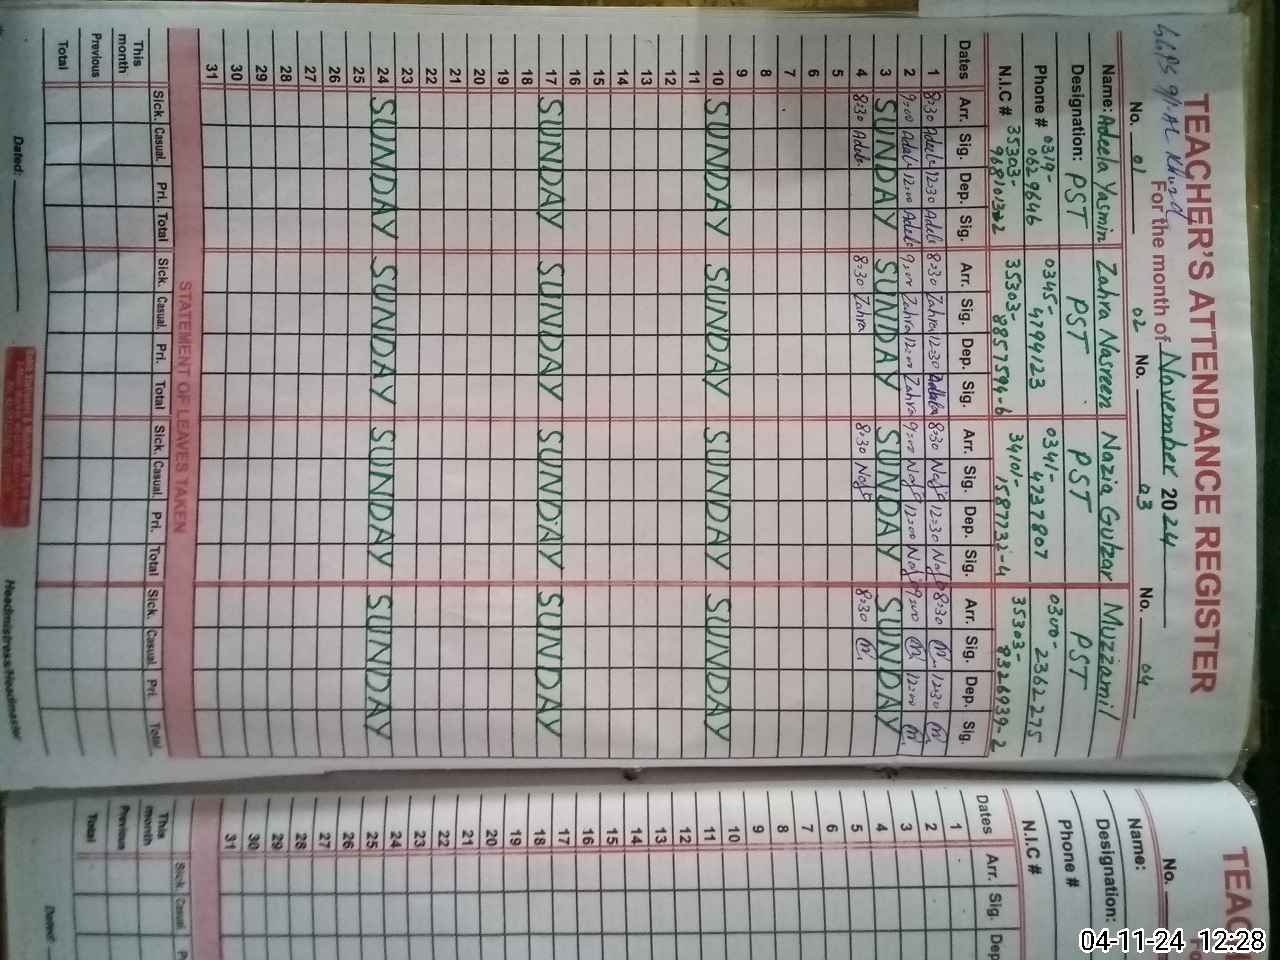 TEACHER'S ATTENDANCE REGISTER
For the month of November 2024
No. 01 02 No. 03 No. 04
Name: Adeela Yasmin Zahra Nasreen Nazia Gulzar Muzzamil
Designation: PST PST PST PST
Phone # 0319-0629646 0345-4794123 0341-4737807 0300-2362275
N.I.C # 35303- 35303-8857594-6 34101-1587732-4 35303-
Dates Arr. Sig. Dep. Sig. Arr. Sig. Dep. Sig. Arr. Sig. Dep. Sig. Arr. Sig. Dep. Sig.
1 8:30 12:30 8:30 Zahra 12:30 8:30 12:30 8:30 12:30
2 9:00 12:00 9:00 Zahra 12:00 Zahra 9:00 12:00 9:00 12:00
3 SUNDAY SUNDAY SUNDAY SUNDAY
4 8:30 8:30 Zahra 8:30 8:30
5
6
7
8
9
10 SUNDAY SUNDAY SUNDAY SUNDAY
11
12
13
14
15
16
17 SUNDAY SUNDAY SUNDAY SUNDAY
18
19
20
21
22
23
24 SUNDAY SUNDAY SUNDAY SUNDAY
25
26
27
28
29
30
31
STATEMENT OF LEAVES TAKEN
Sick. Casual. Pri. Total Sick. Casual. Pri. Total Sick. Casual. Pri. Total Sick. Casual. Pri. Total
This month
Previous
Total
Dated: Headmistress/Headmaster
TEAC
No.
Name:
Designation:
Phone #
N.I.C #
Dates Arr. Sig. Dep
1
2
3
4
5
6
7
8
9
10
11
12
13
14
15
16
17
18
19
20
21
22
23
24
25
26
27
28
29
30
31
Sick Casual P
This month
Previous
Total
Dated:
04-11-24 12:28